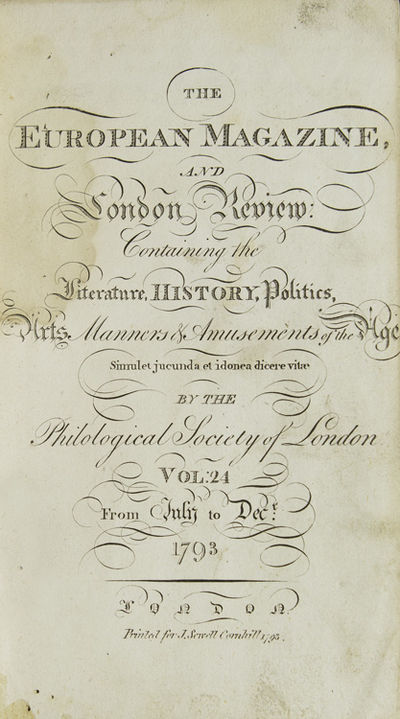 THE
EUROPEAN MAGAZINE,
AND
London Review:
Containing the
Literature, HISTORY, Politics,
Arts, Manners & Amusements of the Age
Simul et jucunda et idonea dicere vitæ
BY THE
Philological Society of London
VOL: 24
From July to Decr.
1793
LONDON
Printed for J. Sewell Cornhill 1793.